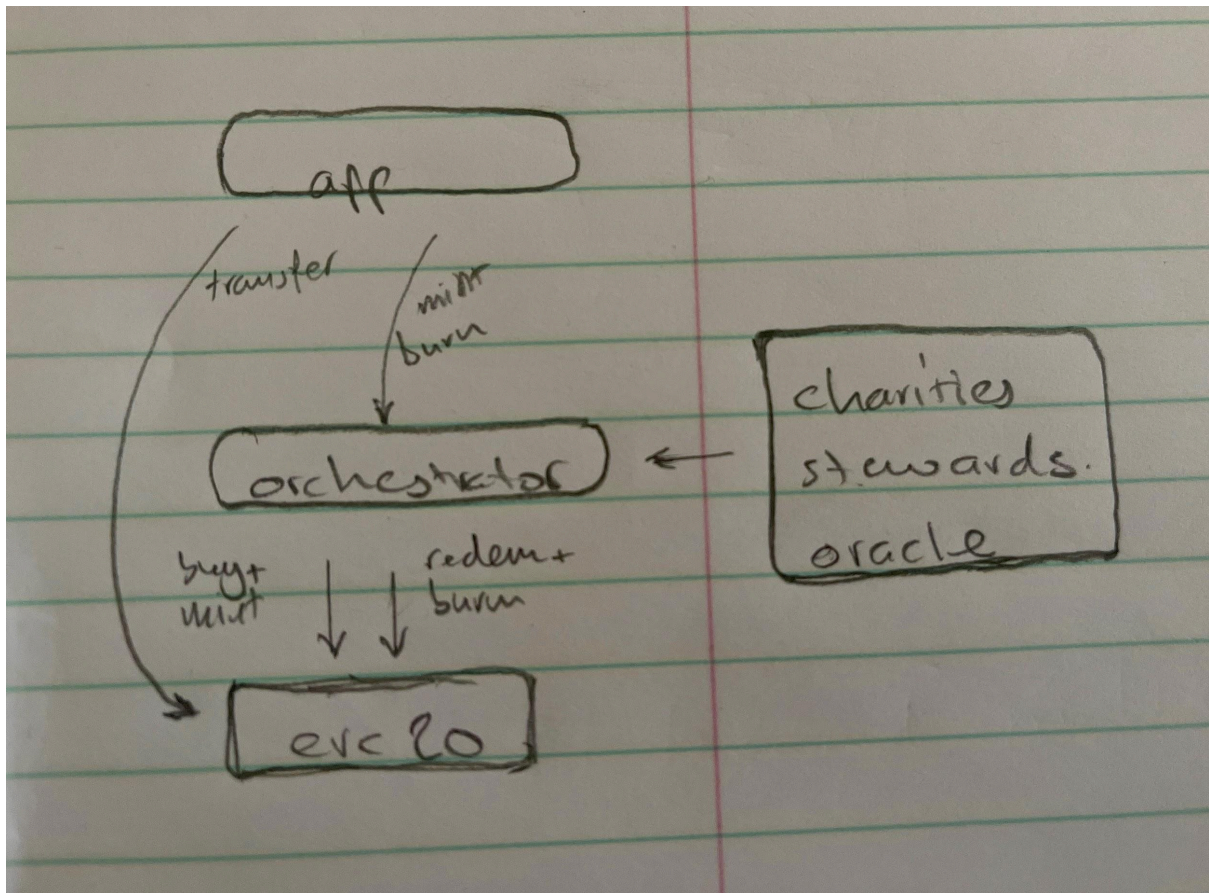 app
transfer
mint
burn
charities
stewards.
oracle
orchestrator
buy+
mint
redem+
burn
erc 20